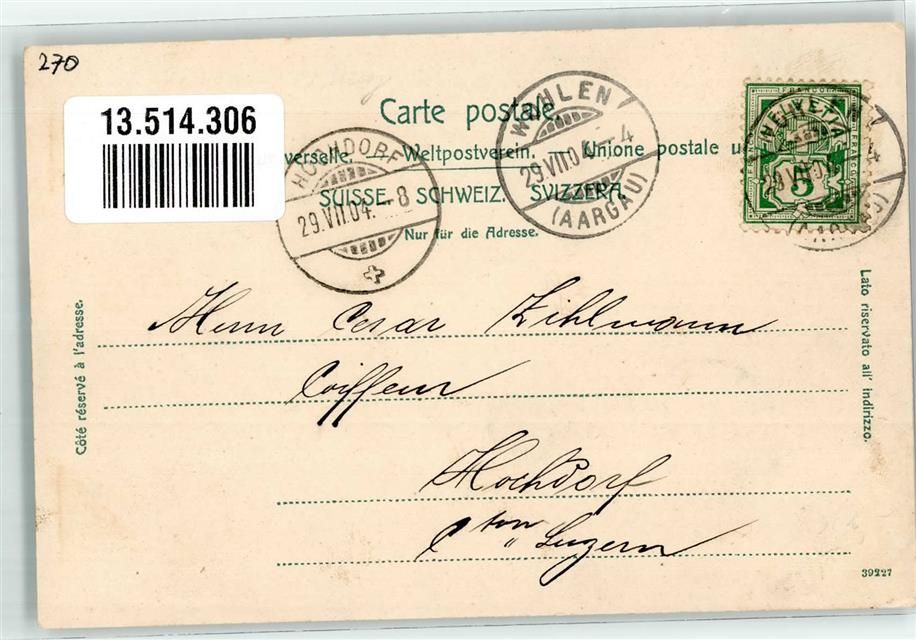 270
13.514.306
Carte postale.
verselle. — Weltpostverein. — Unione postale u
SUISSE. SCHWEIZ. SVIZZERA.
Nur für die Adresse.
HOCHDORF
29.VII.04. 8
WOHLEN
29.VII.04. 4
(AARGAU)
HELVETIA
FRANCO
5
Côté réservé à l'adresse.
Lato riservato all' indirizzo.
Herrn Cesar Zihlmann
Coiffeur
Hochdorf
Cton Luzern
39227